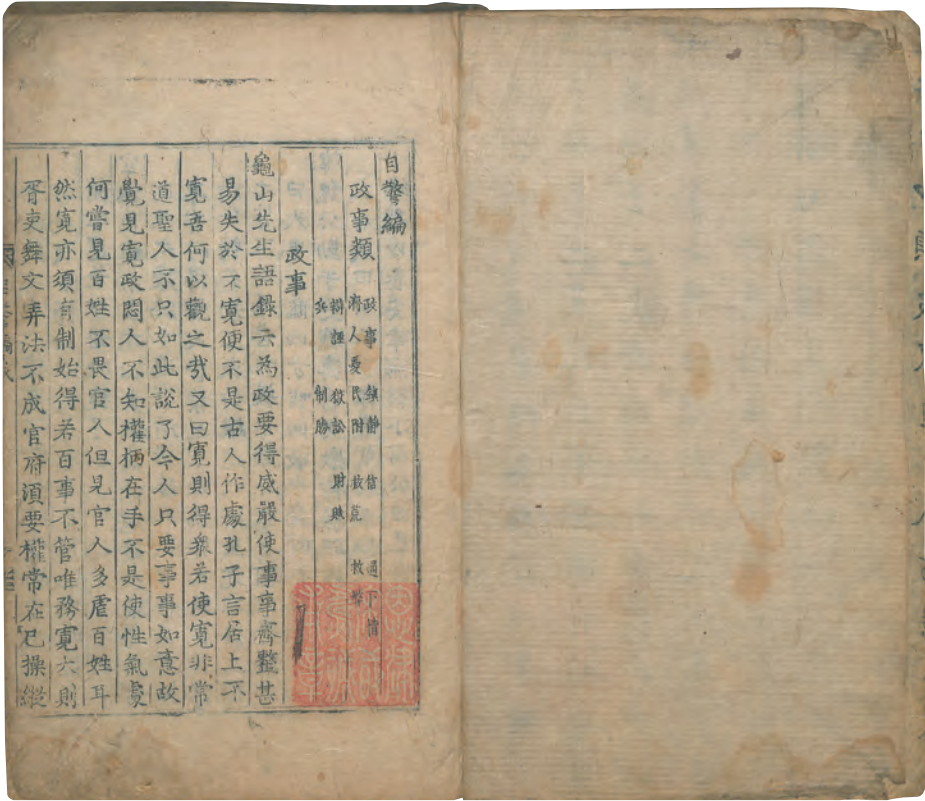 自警編
政事類
政事 鎮靜 信 通下情
濟人愛民附 救荒 救弊
辯誣 獄訟 財賦
兵 制勝
政事
龜山先生語錄云為政要得威嚴使事事齊整甚
易失於不寬便不是古人作處孔子言居上不
寬吾何以觀之哉又曰寬則得衆若使寬非常
道聖人不只如此說了今人只要事事如意故
覺見寬政悶人不知權柄在手不是使性氣處
何嘗見百姓不畏官人但見官人多虐百姓耳
然寬亦須有制始得若百事不管唯務寬大則
胥吏舞文弄法不成官府須要權常在已操縱